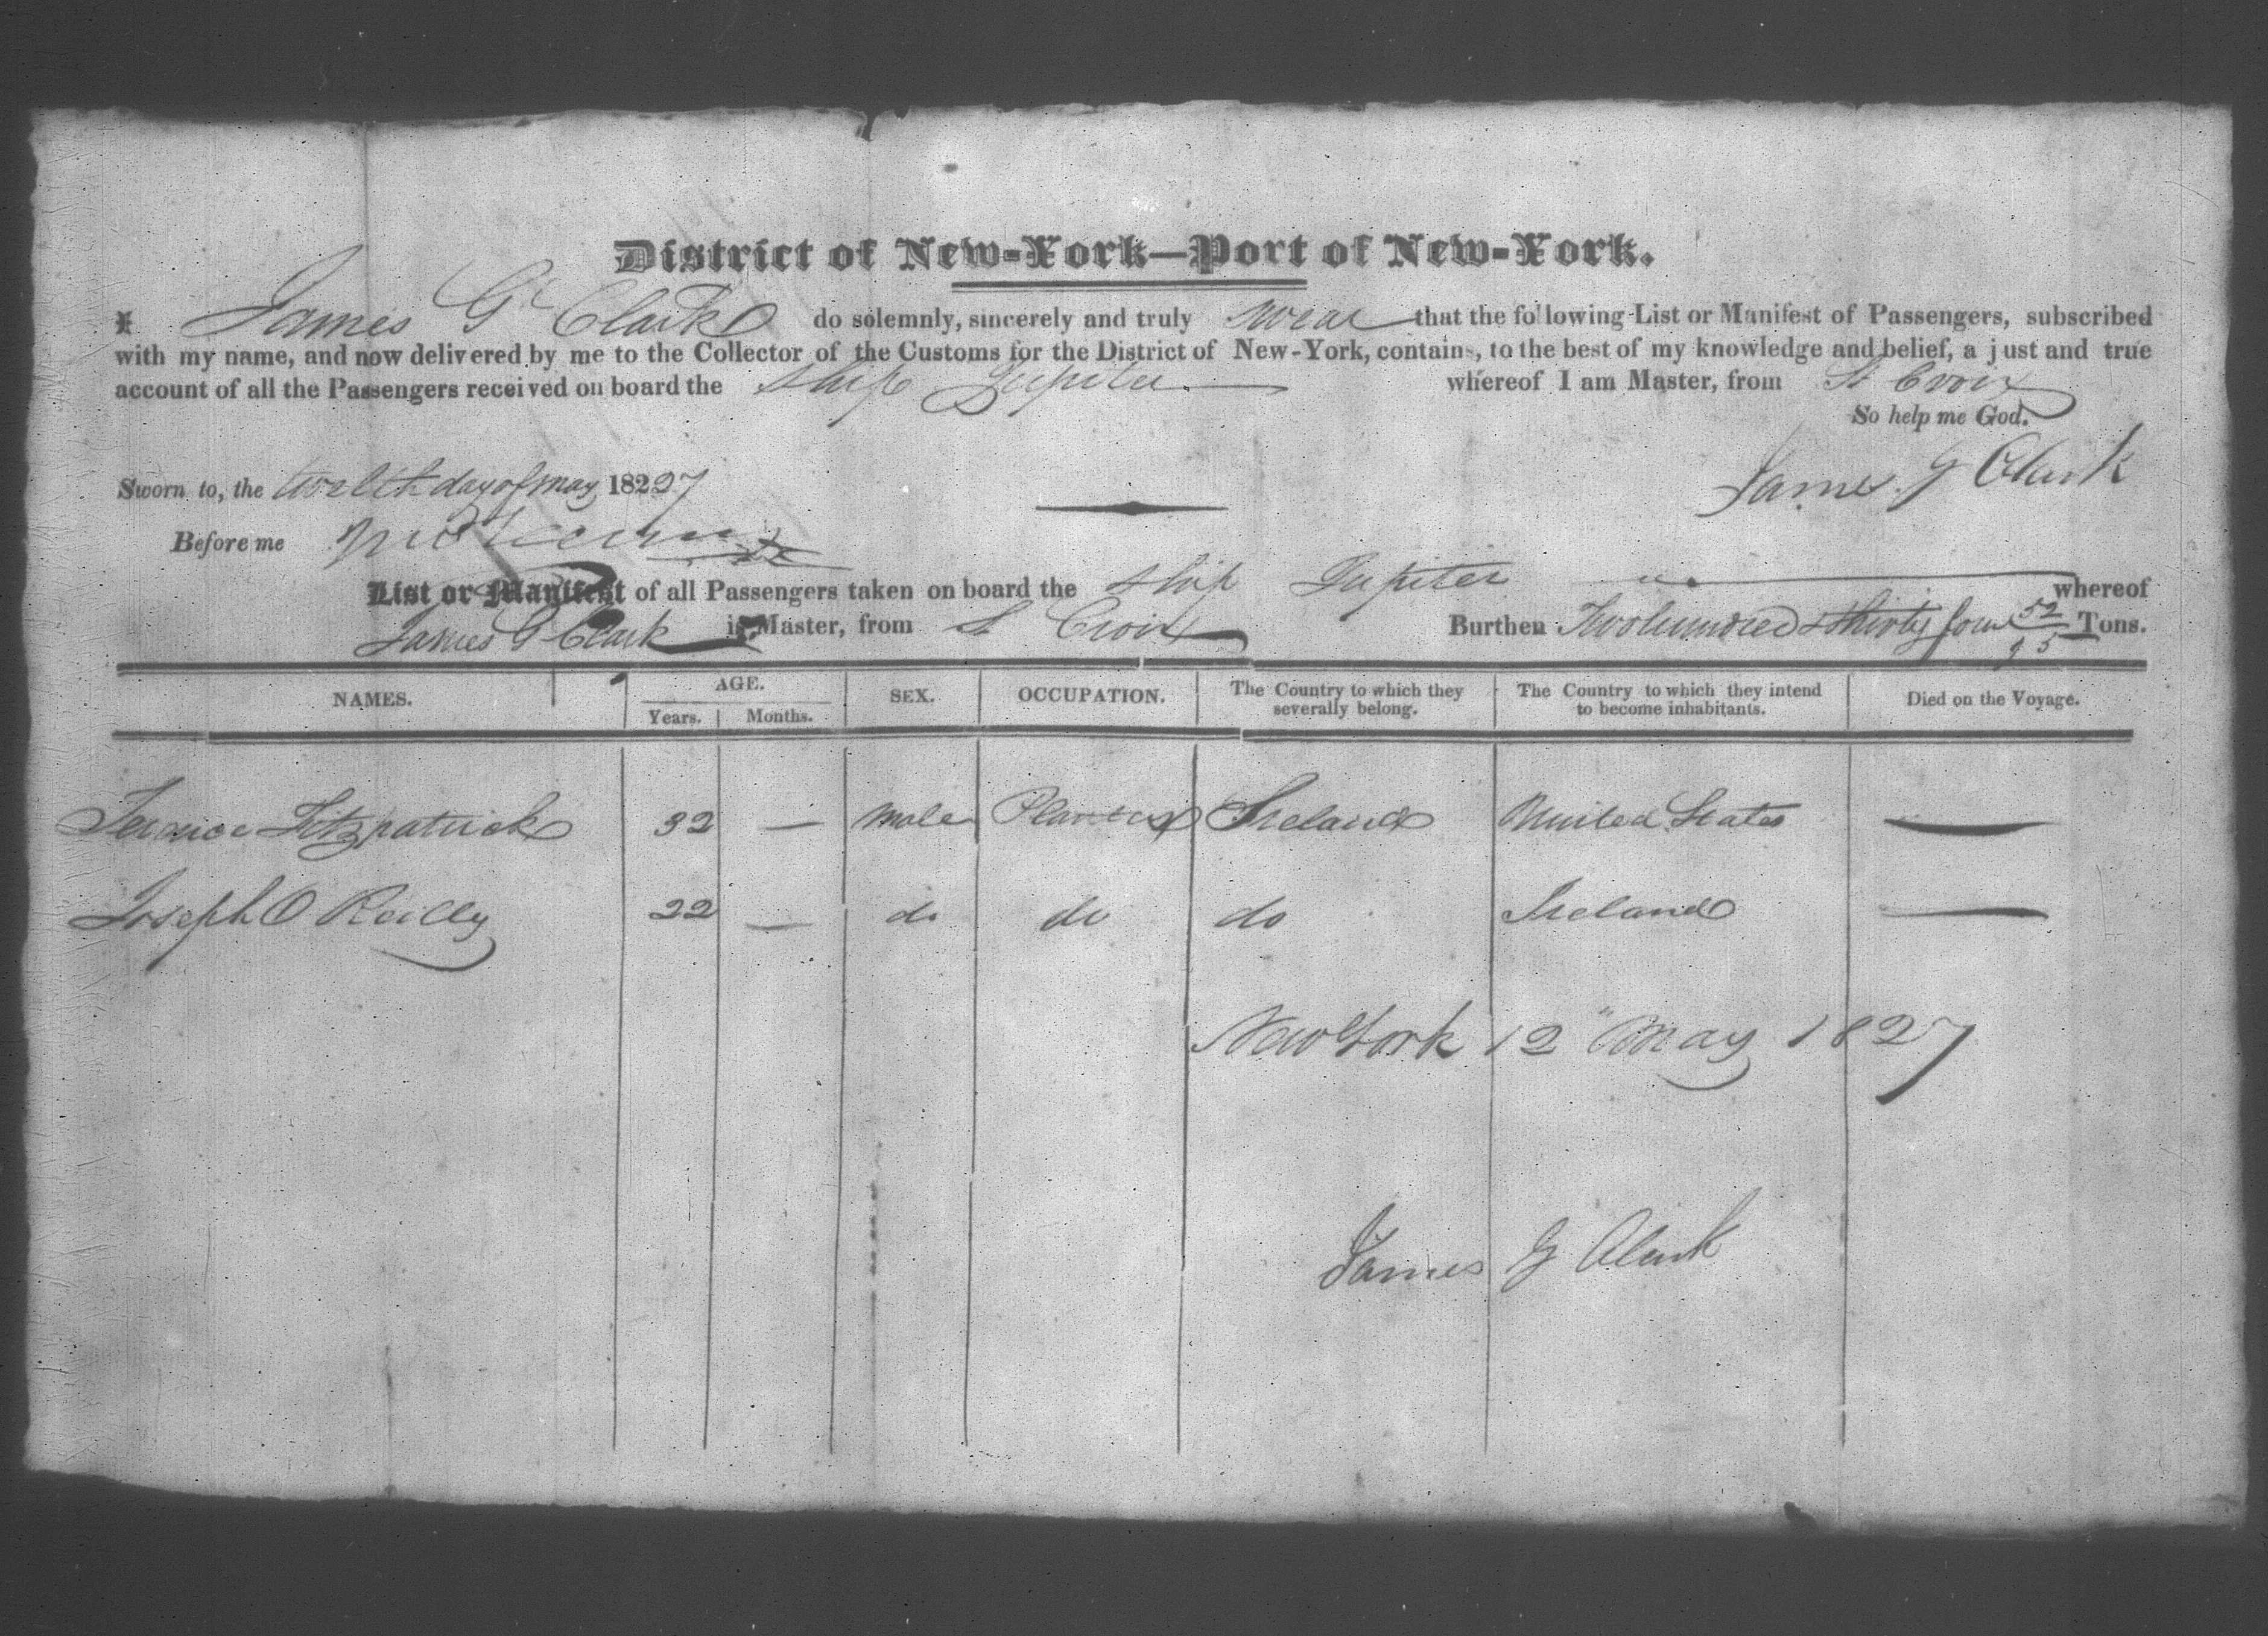 District of New-York—Port of New-York.
I James G. Clark do solemnly, sincerely and truly swear that the following List or Manifest of Passengers, subscribed
with my name, and now delivered by me to the Collector of the Customs for the District of New-York, contains, to the best of my knowledge and belief, a just and true
account of all the Passengers received on board the Ship Jupiter whereof I am Master, from St Croix
So help me God.
James G Clark
Sworn to, the twelth day of may 18227
Before me
List or Manifest of all Passengers taken on board the Ship Jupiter whereof
James G Clark is Master, from St Croix Burthen Two hundred & thirty four 52/95 Tons.
NAMES. AGE. SEX. OCCUPATION. The Country to which they severally belong. The Country to which they intend to become inhabitants. Died on the Voyage.
Years. Months.
Terance Fitzpatrick 32 — male Planter Ireland United States —
Joseph O Reilly 22 — do do do Ireland —
New York 12" May 1827
James G Clark